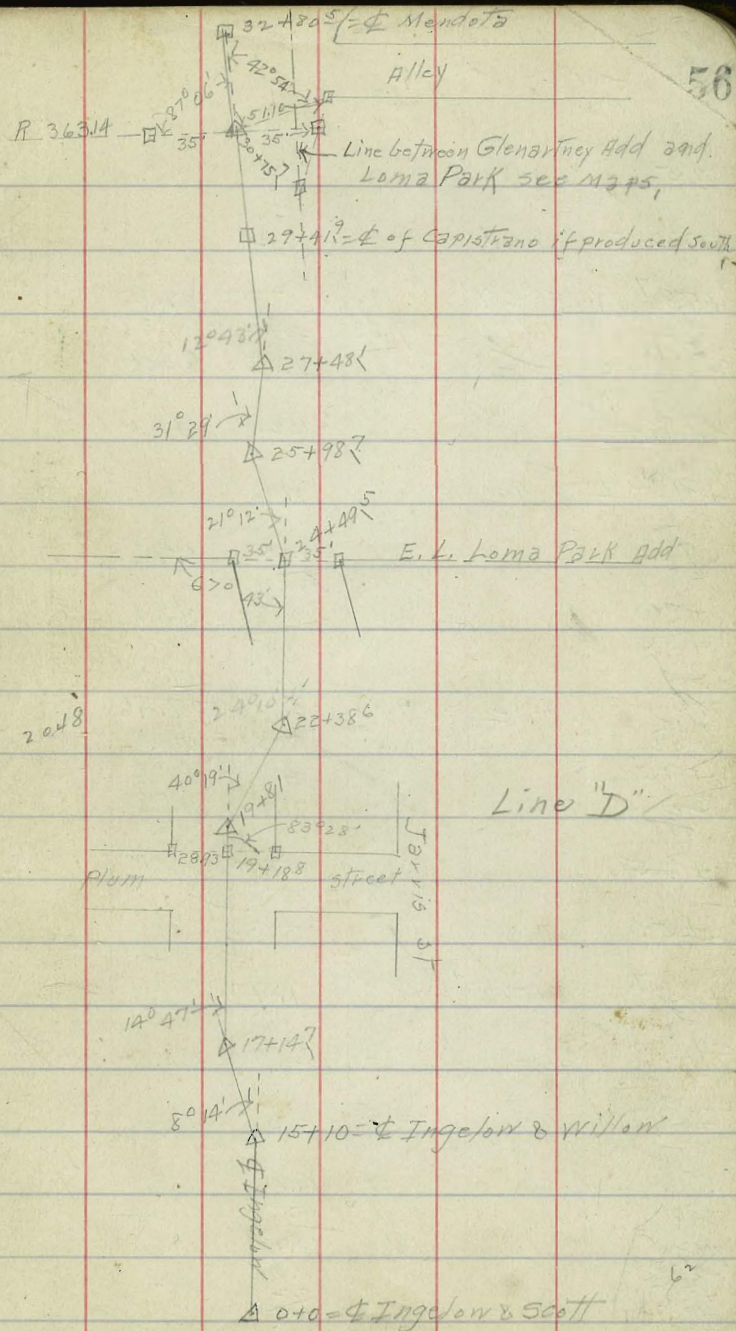 32+80⁵ = ℄ Mendota
56
Alley
42°54'
87°06'
51.10
R 363.14
35'
35'
30+75⁷
Line between Glenartney Add and
Loma Park see maps,
29+41⁹ = ℄ of Capistrano if produced south
12°43'
27+48⁴
31°29'
25+98⁷
21°12'
24+49⁵
35'
35'
E. L. Loma Park Add
43'
22+38⁶
2048
40°19'
19+81
Line "D"
83°28'
28.93
19+18⁸
Plum
street
Jarvis St
14°47'
17+14⁷
8°14'
15+10 = ℄ Ingelow & Willow
℄ Ingelow
6²
0+0 = ℄ Ingelow & Scott